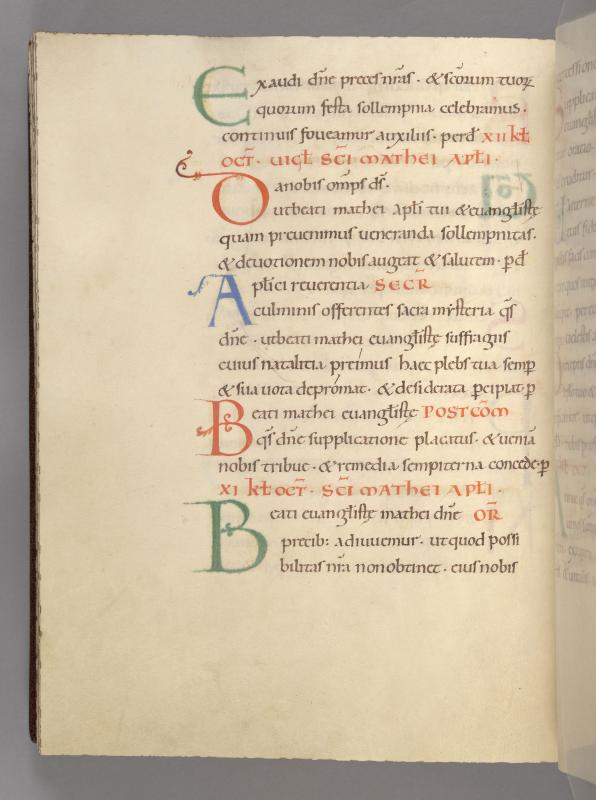 Exaudi dn̄e preces nr̄as · & sc̄orum tuorꝝ
quorum festa sollempnia celebramus ·
continuis foveamur auxiliis · perd̄ xii kl̄
oct̄ · vigl̄ sc̄i mathei apl̄i ·
Da nobis om̄ps ds̄ ·
ut beati mathei apl̄i tui & euangl̄istę
quam prevenimus veneranda sollempnitas ·
& devotionem nobis augeat & salutem · p̄d̄
Apl̄ici reverentia secr̄
culminis offerentes sacra mysteria qs̄
dn̄e · ut beati mathei euangl̄istę suffragiis
cuius natalitia pręimus haec plebs tua semꝑ
& sua vota depromat · & desiderata ꝑcipiat · ꝑ
Beati mathei euangl̄istę postcōm
qs̄ dn̄e supplicatione placatus · & veniā
nobis tribue · & remedia sempiterna concede · ꝑ
xi kl̄ oct̄ · sc̄i mathei apl̄i ·
Beati euangl̄istę mathei dn̄e or̄
precib: adiuvemur · ut quod possi
bilitas nr̄a non obtinet · eius nobis